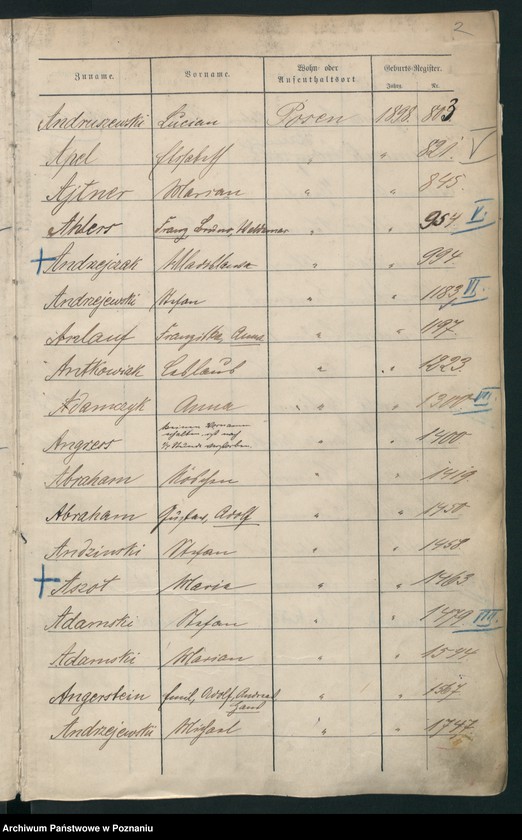 2
Zuname. Vorname. Wohn- oder Aufenthaltsort. Geburts-Register.
Jahrg. Nr.
Andruszewski Lucian Posen 1898. 803
Apel Elisabeth " " 821. V
Ajtner Marian " " 845.
Ahlers Franz Bruno, Waldemar " " 954 VI.
+ Andrzejczak Wladislawa " " 994.
Andrzejewski Stefan " " 1183 VI.
Arlauf Franziska, Anna " " 1197.
Antkowiak Ceslaus " " 1223.
Adamczyk Anna " " 1300. VII
Angress keinen Vornamen erhalten, ist nach verstorben. " " 1400
Abraham " " 1419.
Abraham Gustav, Adolf " " 1450
Andzinski Stefan " " 1458.
+ Aszot Maria " " 1463.
Adamski Stefan " " 1479. VIII.
Adamski Marian " " 1544
Angerstein Emil, Adolf, Andreas Hans " "
Andrzejewski Michael " " 1747.
Archiwum Państwowe w Poznaniu